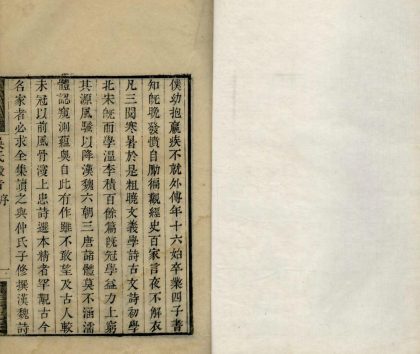 僕幼抱羸疾不就外傅年十六始卒業四子書
知旣晚發憤自勵徧觀經史百家言夜不解衣
凡三閱寒暑於是粗曉文義學詩古文詩初學
北宋旣而學溫李積百餘篇旣冠學益力上窮
其源風騷以降漢魏六朝三唐諸體莫不涵濡
體認窺測蘊奥自此有作雖不敢望及古人較
未冠以前風骨漫上患詩選本精者罕觀古今
名家者必求全集讀之與仲氏子修撰漢魏詩